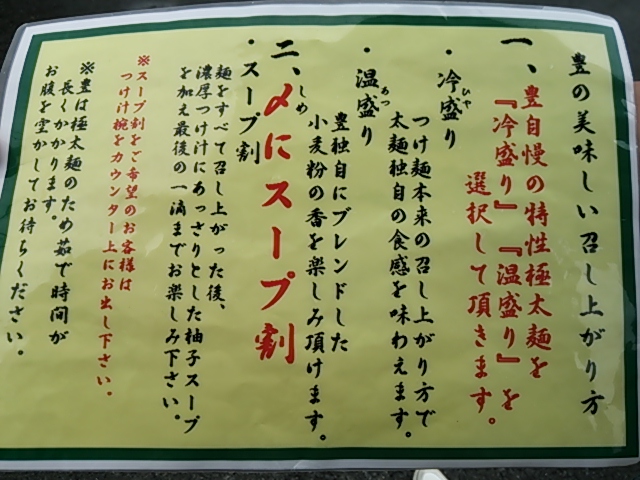 豊の美味しい召し上がり方
一、豊自慢の特性極太麺を
『冷盛り』『温盛り』を
選択して頂きます。
・冷盛り
ひや
つけ麺本来の召し上がり方で
太麺独自の食感を味わえます。
・温盛り
あつ
豊独自にブレンドした
小麦粉の香を楽しみ頂けます。
二、〆にスープ割
しめ
・スープ割
麺をすべて召し上がった後、
濃厚つけ汁にあっさりとした柚子スープ
を加え最後の一滴までお楽しみ下さい。
※スープ割をご希望のお客様は
つけ汁椀をカウンター上にお出し下さい。
※豊は極太麺のため茹で時間が
長くかかります。
お腹を空かしてお待ちください。